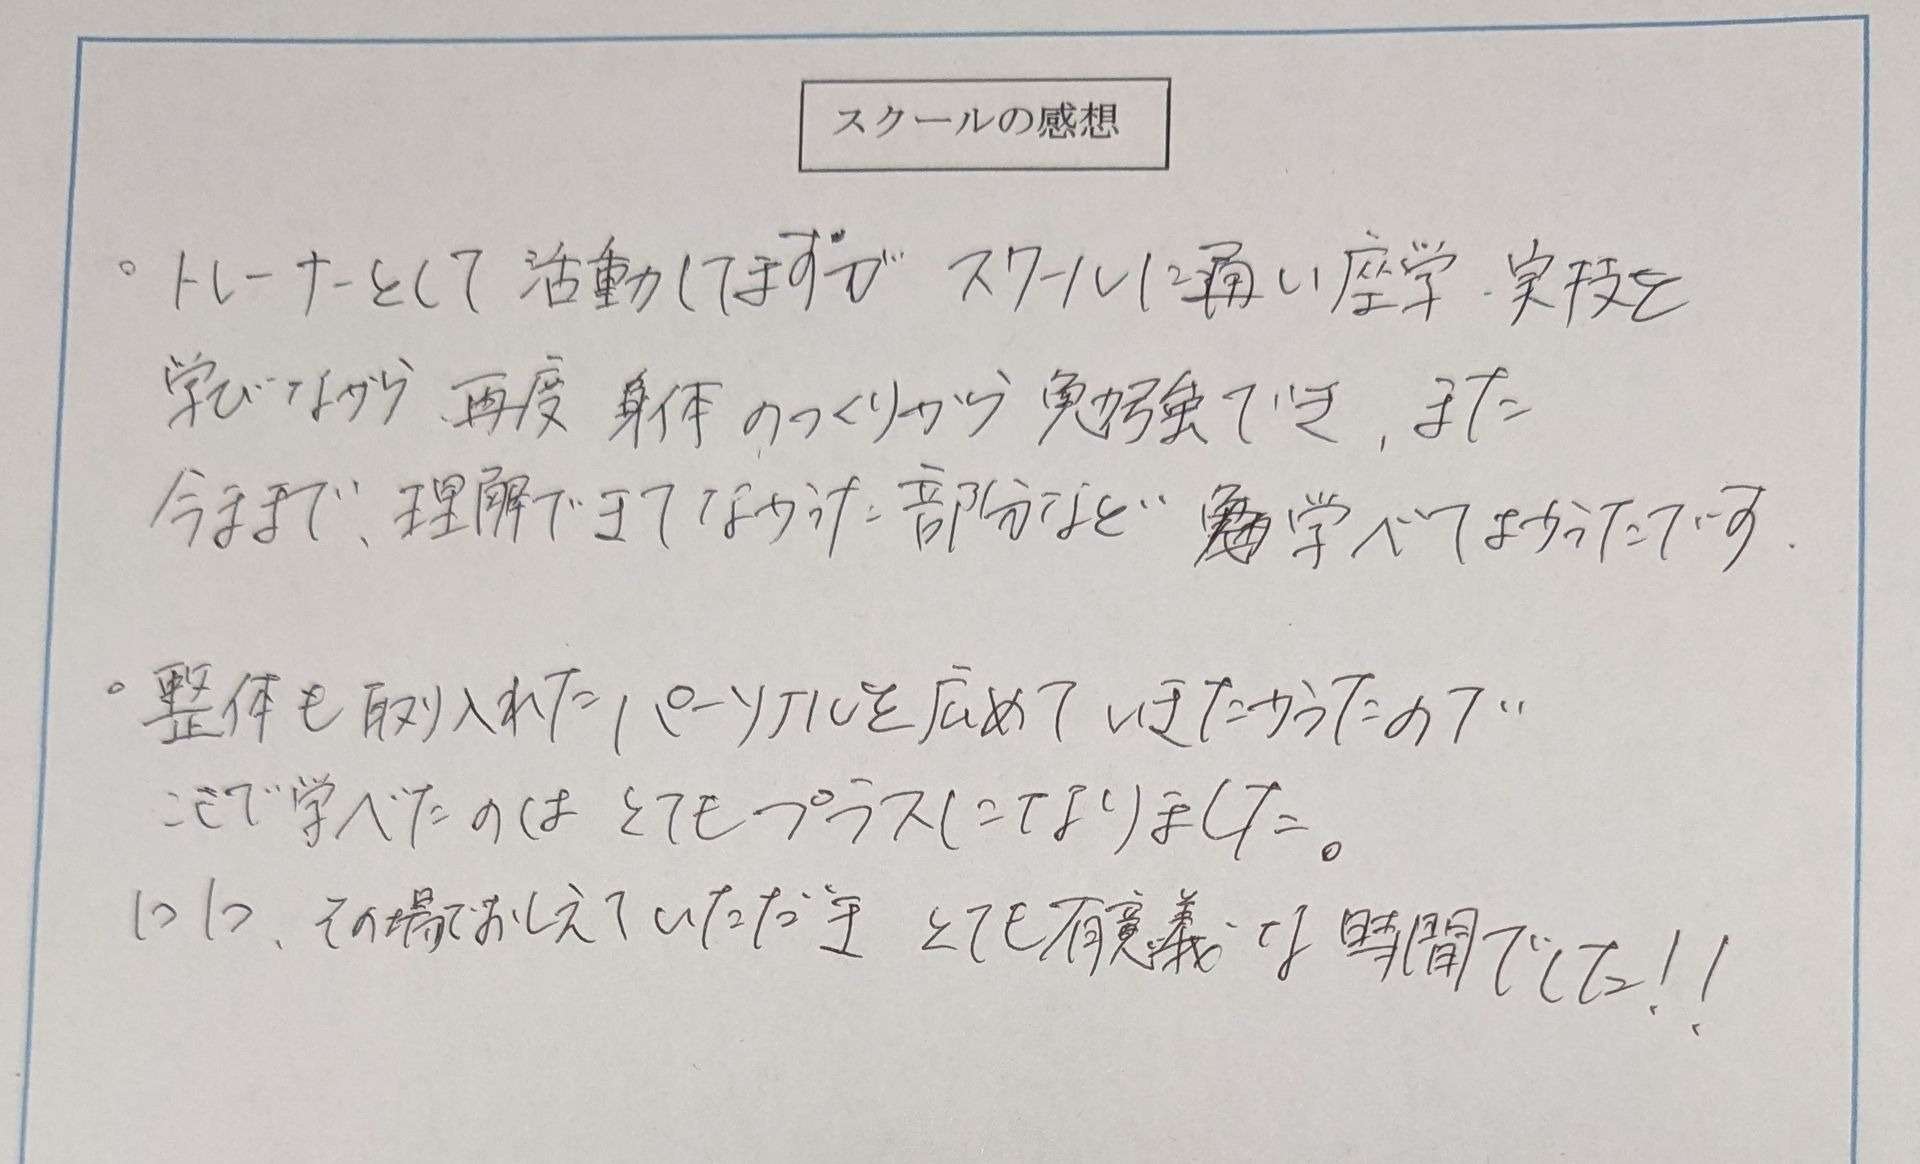 スクールの感想
。トレーナーとして活動してますが スクールに通い座学・実技を
学びながら、再度 身体のつくりから勉強でき、また
今まで、理解できてなかった部分など 学べてよかったです.
。整体も取り入れたパーソナルを広めていきたかったので
ここで学べたのは とてもプラスになりました。
1つ1つ、その場でおしえていただき とても有意義な時間でした!!